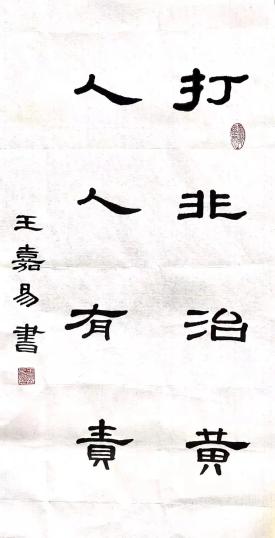 打非治黄
人人有责
王嘉易書